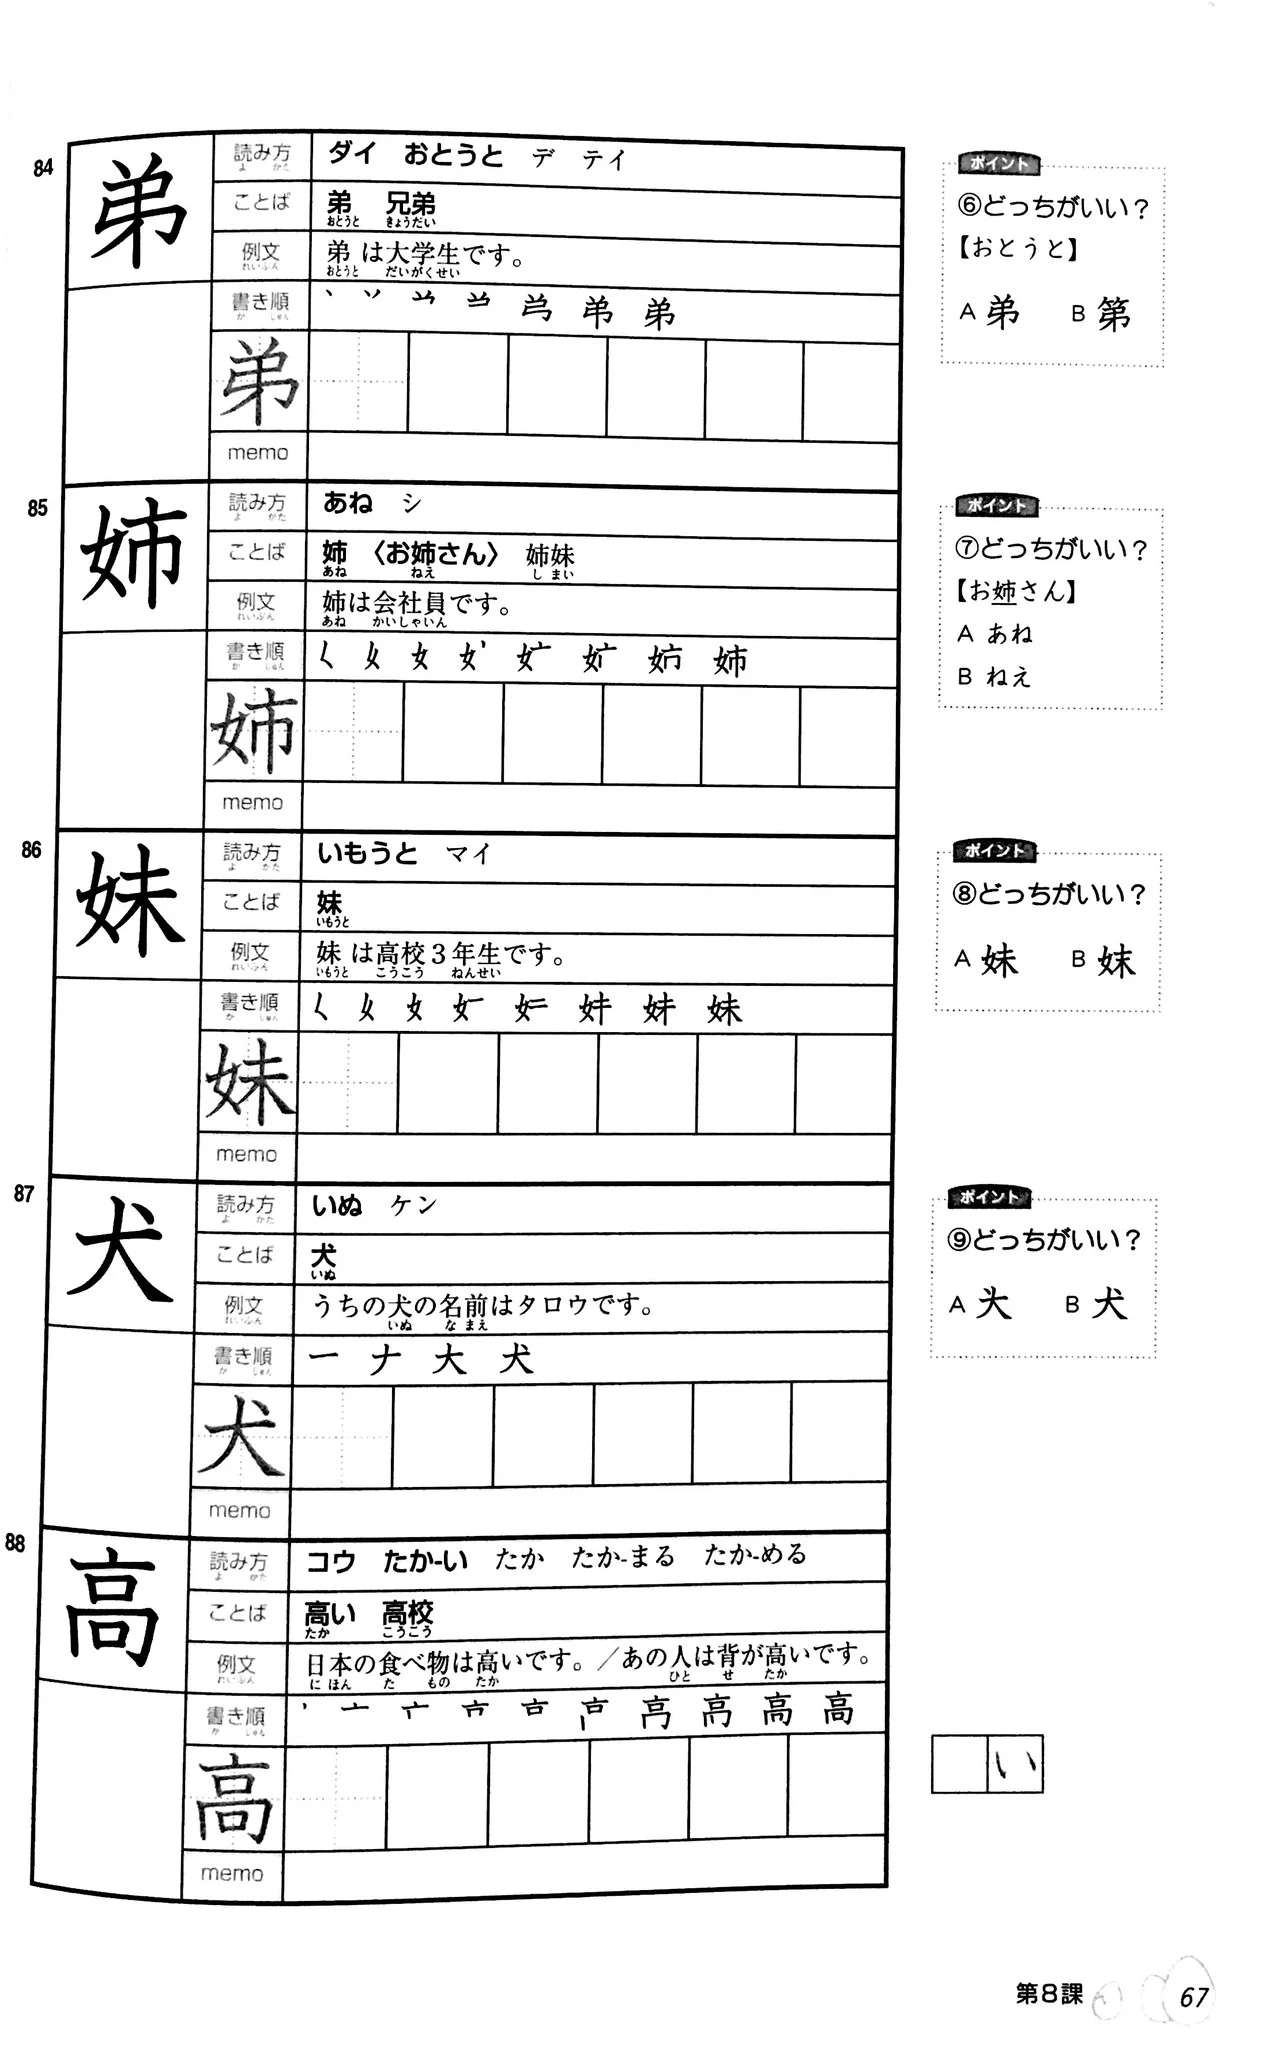 84
弟
読み方
よ かた
ダイ おとうと デ テイ
ことば
弟 兄弟
おとうと きょうだい
例文
れいぶん
弟は大学生です。
おとうと だいがくせい
書き順
か じゅん
弟 弟
弟
memo
ポイント
⑥どっちがいい？
【おとうと】
A 弟 B 第
85
姉
読み方
よ かた
あね シ
ことば
姉 〈お姉さん〉 姉妹
あね ねえ しまい
例文
れいぶん
姉は会社員です。
あね かいしゃいん
書き順
か じゅん
く 女 女 姉
姉
memo
ポイント
⑦どっちがいい？
【お姉さん】
A あね
B ねえ
86
妹
読み方
よ かた
いもうと マイ
ことば
妹
いもうと
例文
れいぶん
妹は高校３年生です。
いもうと こうこう ねんせい
書き順
か じゅん
く 女 女 妹 妹
妹
memo
ポイント
⑧どっちがいい？
A 妹 B 妺
87
犬
読み方
よ かた
いぬ ケン
ことば
犬
いぬ
例文
れいぶん
うちの犬の名前はタロウです。
いぬ なまえ
書き順
か じゅん
一 ナ 大 犬
犬
memo
ポイント
⑨どっちがいい？
A B 犬
88
高
読み方
よ かた
コウ たか-い たか たか-まる たか-める
ことば
高い 高校
たか こうこう
例文
れいぶん
日本の食べ物は高いです。／あの人は背が高いです。
にほん た もの たか ひと せ たか
書き順
か じゅん
高 高
高
memo
い
第8課
67